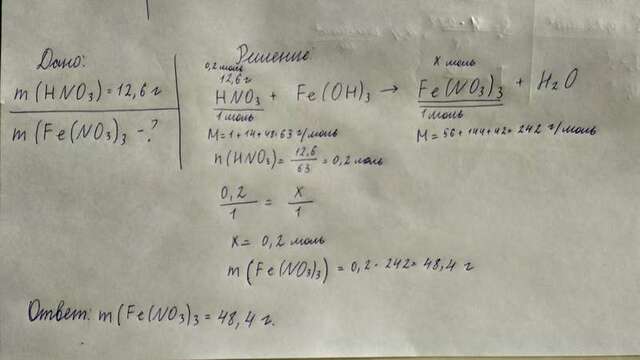 Дано:
m(HNO₃)=12,6 г
m(Fe(NO₃)₃ -?
Решение:
0,2 моль
12,6 г
x моль
HNO₃ + Fe(OH)₃ → Fe(NO₃)₃ + H₂O
1 моль
1 моль
M=1+14+48=63 г/моль
M=56+144+42=242 г/моль
n(HNO₃)= 12,6/63 = 0,2 моль
0,2/1 = x/1
x= 0,2 моль
m(Fe(NO₃)₃) = 0,2·242= 48,4 г
Ответ: m(Fe(NO₃)₃ = 48,4 г.